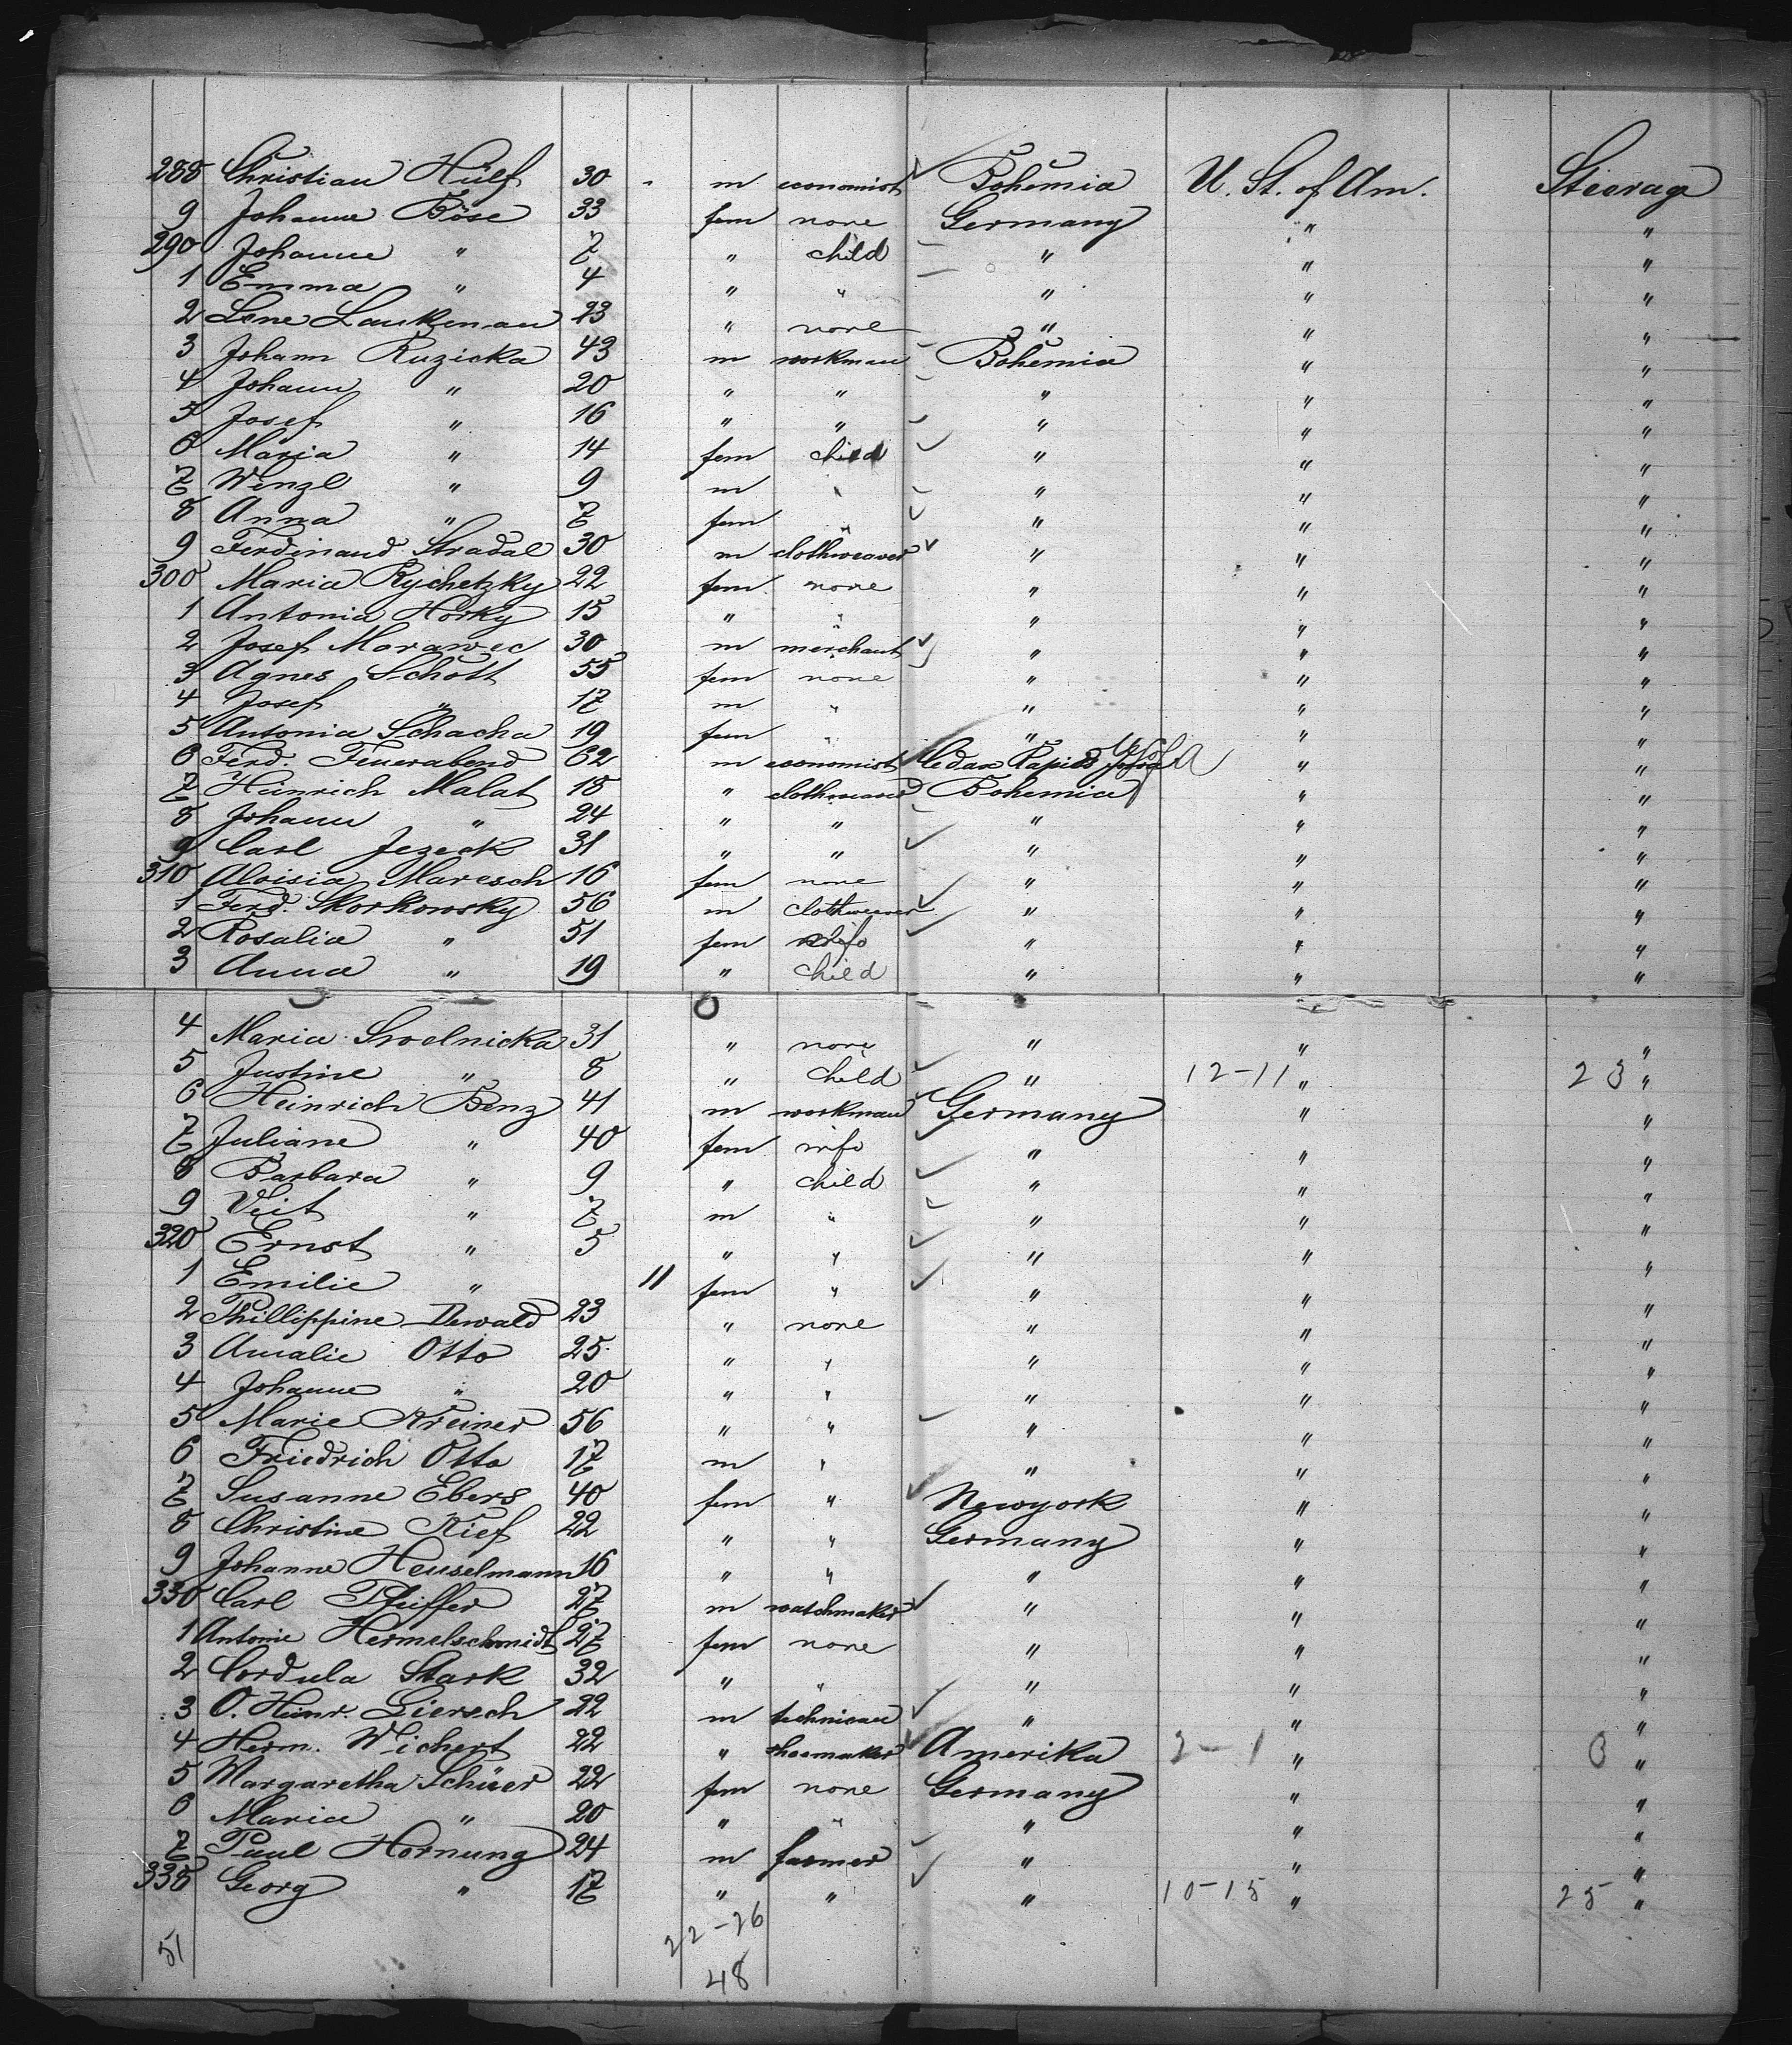 288 Christian Hülf 30 m economist Bohemia U. St. of Am. Steerage
9 Johanne Böse 33 fem none Germany " "
290 Johanne " 7 " child " " "
1 Emma " 4 " " " " "
2 Lene Laukenau 23 " none " " "
3 Johann Ruzicka 43 m workman Bohemia " "
4 Johann " 20 " " " " "
5 Josef " 16 " " " " "
6 Maria " 14 fem child " " "
7 Wenzl " 9 m " " " "
8 Anna " 7 fem " " " "
9 Ferdinand Stradal 30 m clothweaver " " "
300 Maria Rychetzky 22 fem none " " "
1 Antonia Horky 15 " " " " "
2 Josef Marawec 30 m merchant " " "
3 Agnes Schott 55 fem none " " "
4 Josef " 17 m " " " "
5 Antonia Schacha 19 fem " " " "
6 Ferd. Feuerabend 62 m economist Cedar Rapids U S of A "
7 Heinrich Malat 18 " clothweaver Bohemia " "
8 Johann " 24 " " " " "
9 Carl Jezeck 31 " " " " "
310 Aloisia Maresch 16 fem none " " "
1 Ferd. Skorkowsky 56 m clothweaver " " "
2 Rosalia " 51 fem wife " " "
3 Anna " 19 " child " " "
4 Maria Swelnicka 31 " none " " "
5 Justine " 8 " child " 12-11 " 23 "
6 Heinrich Benz 41 m workman Germany " "
7 Juliane " 40 fem wife " " "
8 Barbara " 9 " child " " "
9 Veit " 7 m " " " "
320 Ernst " 5 " " " " "
1 Emilie " 11 fem " " " "
2 Phillippine Dewald 23 " none " " "
3 Amalie Otto 25 " " " " "
4 Johanne " 20 " " " " "
5 Marie Kreiner 56 " " " " "
6 Friedrich Otto 17 m " " " "
7 Susanne Ebers 40 fem " Newyork " "
8 Christine Kief 22 " " Germany " "
9 Johanne Heuselmann 16 " " " " "
330 Carl Pfeiffer 27 m watchmaker " " "
1 Antonie Hermelschmidt 27 fem none " " "
2 Cordula Stark 32 " " " " "
3 O. Heinr. Giersch 22 m technican " " "
4 Herm. Wichert 22 " shoemaker Amerika 2-1 " 3 "
5 Margaretha Schüer 22 fem none Germany " "
6 Maria " 20 " " " " "
7 Paul Hornung 24 m farmer " " "
338 Georg " 17 " " " 10-15 " 25 "
51 22-26
48